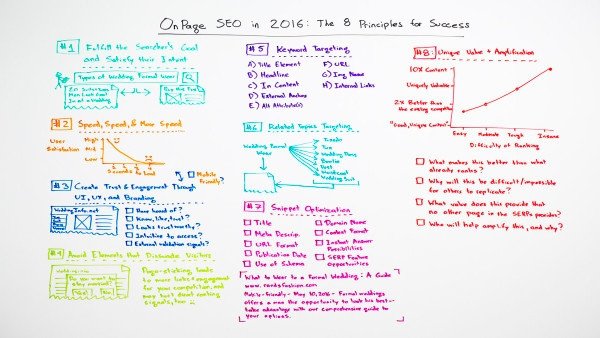 OnPage SEO in 2016: The 8 Principles for Success
#1 Fulfill the Searcher's Goal
and Satisfy their Intent
Types of Wedding Formal Wear
20 Solutions
Men Look Good
In at a Wedding
Buy this Tux!
#2 Speed, Speed, & More Speed
User
Satisfaction
High
Mid
Low
Seconds to Load
Mobile
Friendly?
#3 Create Trust & Engagement Through
UI, UX, and Branding
WeddingInfo.net
Ever heard of?
Know, like, trust?
Looks trustworthy?
Intuitive to access?
External validation signals?
#4 Avoid Elements that Dissuade Visitors
Do you want to
stay married?
Yes! No!
Pogo-sticking leads
to more links + engagement
for your competitors, and
may hurt direct ranking
signals, too
#5 Keyword Targeting
A) Title Element
B) Headline
C) In Content
D) External Anchors
E) Alt Attribute(s)
F) URL
G) Img Name
H) Internal Links
#6 Related Topics Targeting
Wedding Formal
Wear
Tuxedo
Tux
Wedding Dress
Vest
Wedding Suit
#7 Snippet Optimization
Title
Meta Descrip.
URL Format
Publication Date
Use of Schema
Domain Name
Content Format
Instant Answer
Possibilities
SERP Feature
Opportunities
What to Wear to a Formal Wedding: A Guide
www.randsfashion.com
Mobile-friendly - May 30, 2016 - Formal weddings
offer a man the opportunity to look his best -
take advantage with our comprehensive guide to
your options.
#8: Unique Value + Amplification
10X Content
Uniquely Valuable
2X Better than
the existing competition
"Good, Unique Content"
Easy Moderate Tough Insane
Difficulty of Ranking
What makes this better than what
already ranks?
Why will this be difficult/impossible
for others to replicate?
What value does this provide that
no other page in the SERPs provides?
Who will help amplify this, and why?